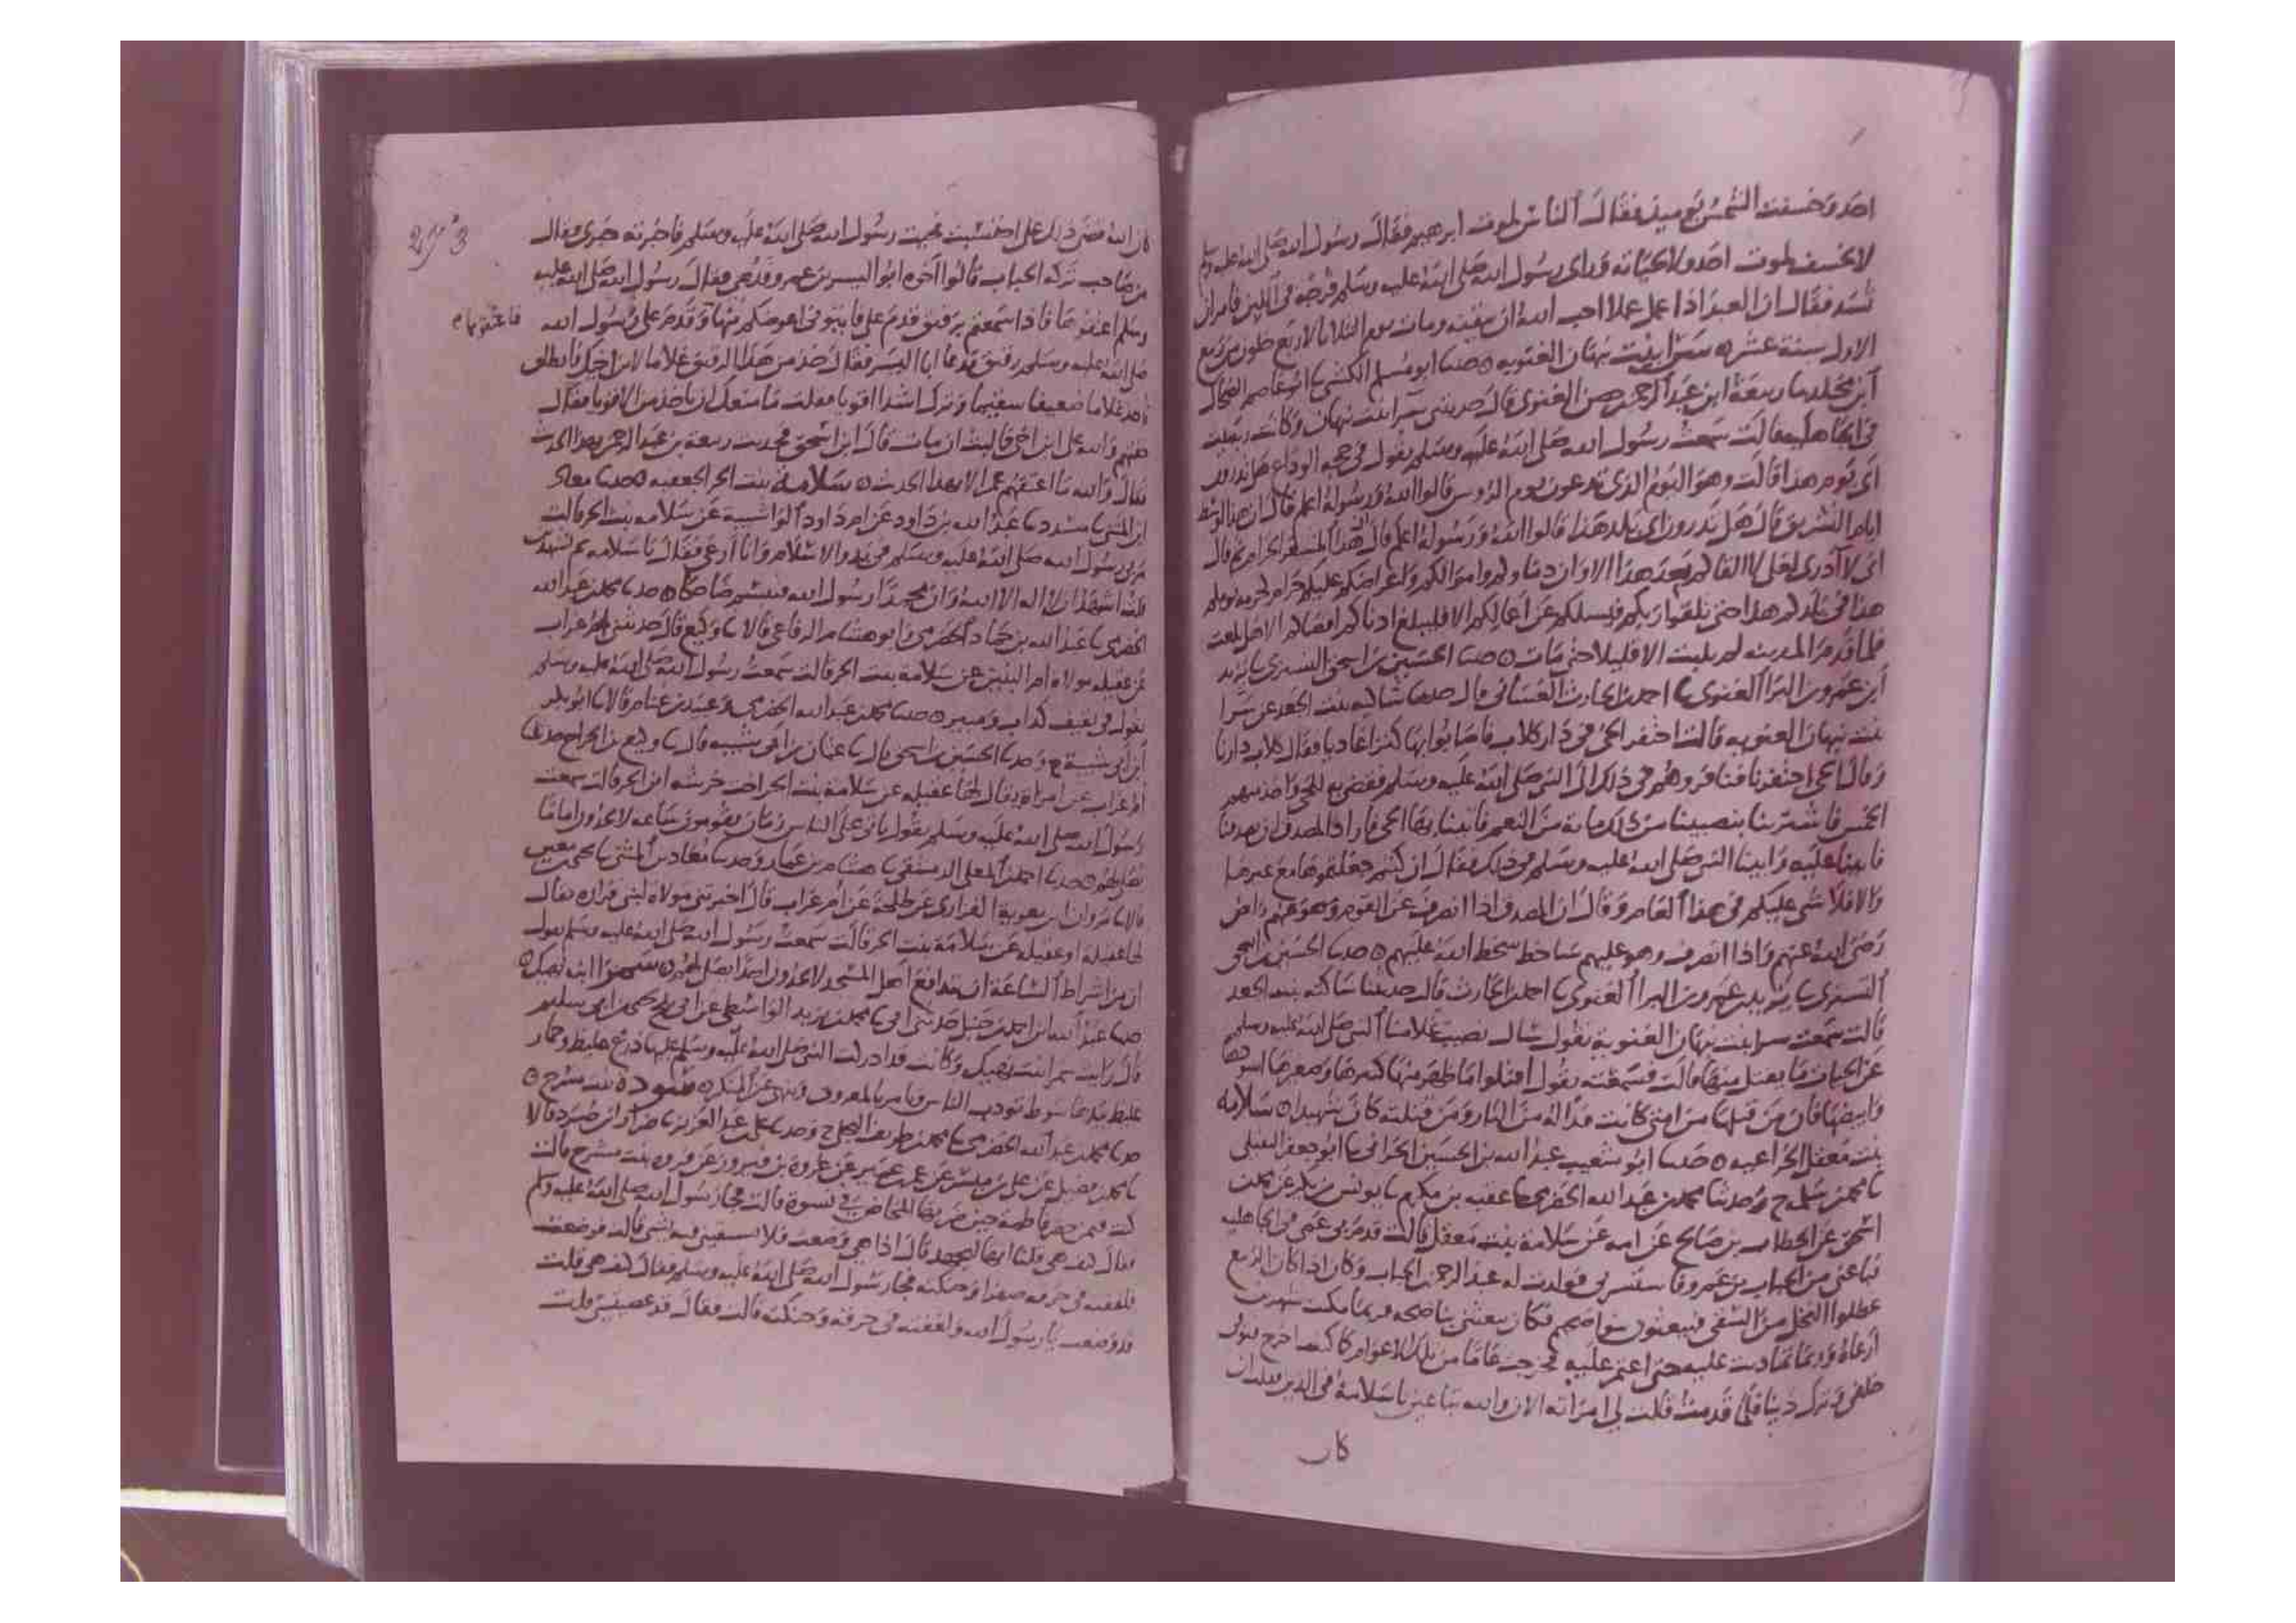 احد وخسفت الشمس يوميذ فقال الناس لموت ابرهيم فقال رسول الله صلى الله عليه وسلم
لا تخسف لموت احد ولا لحياته وراى رسول الله صلى الله عليه وسلم فرجه في اللبن فامر ان
تسد فقال ان العبد اذا عمل عملا احب الله ان يتقنه ومات يوم الثلاثا لاربع خلون من ربيع
الاول سنة عشر ه سرا بنت نبهان الغنويه ه حدثنا ابو مسلم الكشي ثنا ابو عاصم الضحاك
ابن مخلد ثنا ربيعة ابن عبد الرحمن بن حصن الغنوي قال حدثتني سرا بنت نبهان وكانت ربة بيت
في الجاهليه قالت سمعت رسول الله صلى الله عليه وسلم يقول في حجه الوداع هل تدرون
اي يوم هذا قالت وهو اليوم الذي تدعون يوم الروس قالوا الله ورسوله اعلم قال ان هذا اوسط
ايام التشريق قال هل تدرون اي بلد هذا قالوا الله ورسوله اعلم قال هذا المشعر الحرام ثم قال
اني لا ادري لعلي لا القاكم بعد هذا الا وان دماكم واموالكم واعراضكم عليكم حرام كحرمة يومكم
هذا في بلدكم هذا حتى تلقوا ربكم فيسلكم عن اعمالكم الا فليبلغ ادناكم اقصاكم الا هل بلغت
فلما قدم المدينه لم يلبث الا قليلا حتى مات ه حدثنا الحسين بن اسحق التستري ثنا يزيد
ابن عمرو بن البرا الغنوي ثنا احمد بن الحارث الغساني قال حدثتنا ساكنه بنت الجعد عن سرا
بنت نبهان الغنويه قالت احتفر الحي في دار كلاب فاصابوا بها كنزا عاديا فقال كلاب دارنا
وقال الحي احتفرنا فنافروهم في ذلك الى النبي صلى الله عليه وسلم فقضى به للحي واخذ منهم
الخمس فاشترينا بنصيبنا من ذلك ماية من النعم فاتينا بها الحي فاراد المصدق ان يصدقنا
فابينا عليه واتينا النبي صلى الله عليه وسلم في ذلك فقال ان كنتم جعلتموها مع غيرها
والا فلا شي عليكم في هذا العام وقال ان المصدق اذا انصرف عن القوم وهو عنهم راض
رضي الله عنهم واذا انصرف وهو عليهم ساخط سخط الله عليهم ه حدثنا الحسين بن اسحق
التستري ثنا يزيد بن عمرو بن البرا الغنوي ثنا احمد بن الحارث قال حدثتنا ساكنه بنت الجعد
قالت سمعت سرا بنت نبهان الغنوية تقول سال نصيب غلامنا النبي صلى الله عليه وسلم
عن الحيات ما يقتل منها قالت فسمعته يقول اقتلوا ما ظهر منها كبيرها وصغيرها اسودها
وابيضها فان من قتلها من امتي كانت فداه من النار ومن قتلته كان شهيدا ه سلامه
بنت معقل الخزاعيه ه حدثنا ابو شعيب عبد الله بن الحسين الحراني ثنا ابو جعفر النفيلي
ثنا محمد بن سلمه ح وحدثنا محمد بن عبد الله الحضرمي ثنا عقبه بن مكرم ثنا يونس بن بكير عن محمد بن
اسحق عن الخطاب بن صالح عن امه عن سلامة بنت معقل قالت قدم بي عمي في الجاهليه
فباعني من الحباب بن عمرو فاستسرني فولدت له عبد الرحمن بن الحباب وكان اذا كان الربيع
عطلوا النخل من السقي فيبعثون بنواضحهم فكان يبعثني بناضحه فربما مكثت شهرين
ارعاه وربما تمادت عليه حتى اعتم عليه فخرجت عاما من تلك الاعوام كما كنت اخرج فتوفي
خلفي وترك دينا فلما قدمت قالت لي امراته الان والله تباعين يا سلامة في الدين فقلت ان
كان
كان الله قضى ذلك علي احتسبت فجيت رسول الله صلى الله عليه وسلم فاخبرته خبري فقال
من صاحب تركه الحباب قالوا اخوه ابو اليسر بن عمرو فدعي فقال رسول الله صلى الله عليه
وسلم اعتقوها فاذا سمعتم برقيق قدم علي فاتوني اعوضكم منها وقدم على رسول الله
فاعتقوها م
293
صلى الله عليه وسلم رقيق فدعا ابا اليسر فقال خذ من هذا الرقيق غلاما لابن اخيك فانطلق
فاخذ غلاما ضعيفا سقيما وترك اشدا اقويا فقلت ما منعك ان تاخذ من الاقويا فقال
والله على ابن اخي فما لبث ان مات قال ابن اسحق فحدثت ربيعة بن عبد الرحمن بهذا الحديث
فقال والله ما اعتقهم عمر الا بهذا الحديث ه سلامة بنت الحر الجعفيه ه حدثنا معاذ
ابن المثنى ثنا مسدد ثنا عبد الله بن داود عن ام داود الوابشية عن سلامه بنت الحر قالت
مر بي رسول الله صلى الله عليه وسلم في بدو الاسلام وانا ارعى فقال يا سلامه بم تشهدين
قلت اشهد ان لا اله الا الله وان محمدا رسول الله فتبسم ضاحكا ه حدثنا محمد بن عبد الله
الحضرمي ثنا عبد الله بن حماد الحضرمي وابو هشام الرفاعي قالا ثنا وكيع قال حدثتني ام غراب
عن عقيله مولاة ام البنين عن سلامة بنت الحر قالت سمعت رسول الله صلى الله عليه وسلم
يقول في ثقيف كذاب ومبير ه حدثنا محمد بن عبد الله الحضرمي وعبيد بن غنام قالا ثنا ابو بكر
ابن ابي شيبة ح وحدثنا الحسين بن اسحق قال ثنا عثمان بن ابي شيبه قال ثنا وكيع بن الجراح حدثتني
ام غراب عن امراة يقال لها عقيله عن سلامة بنت الحر اخت خرشه ابن الحر قالت سمعت
رسول الله صلى الله عليه وسلم يقول ياتي على الناس زمان يقومون ساعه لا يجدون اماما
يصلي بهم ه حدثنا احمد بن المعلى الدمشقي ثنا هشام بن عمار وحدثنا معاذ بن المثنى ثنا يحيى بن معين
قالا ثنا مروان ابن معوية الفزاري عن طلحة عن ام غراب قال اخبرتني مولاة لبني فزاره يقال
لها عقيلة او عقيله عن سلامة بنت الحر قالت سمعت رسول الله صلى الله عليه وسلم يقول
ان من اشراط الساعة ان يتدافع اهل المسجد لا يجدون احدا يصلي بهم ه سمرا ابنت نهيك ه
حدثنا عبد الله ابن احمد بن حنبل حدثني ابي ثنا محمد بن يزيد الواسطي عن ابي بلج يحيى بن ابي سليم
قال رايت سمرا بنت نهيك وكانت قد ادركت النبي صلى الله عليه وسلم عليها درع غليظ وخمار
غليظ بيدها سوط تودب الناس وتامر بالمعروف وتنهى عن المنكر ه سودة بنت مسرح ه
حدثنا محمد بن عبد الله الحضرمي ثنا محمد بن طريف البجلي ح وحدثنا علي بن عبد العزيز ثنا ضرار ابن صرد قالا
ثنا محمد بن فضيل عن علي بن ميسر عن عمر بن عمير عن عروة بن فيروز عن فروه بنت مسرح قالت
كنت فيمن حضر فاطمة حين ضربها المخاض في نسوة قالت فجا رسول الله صلى الله عليه وسلم
فقال كيف هي قلنا انها لتجهد قال اذا هي وضعت فلا تسبقيني فيه بشي قالت فوضعت
فلففته في خرقه صفرا وحنكته فجا رسول الله صلى الله عليه وسلم فقال كيف هي قلت
قد وضعت يا رسول الله ولففته في خرقة وحنكته قالت فقال قد عصيتني قلت